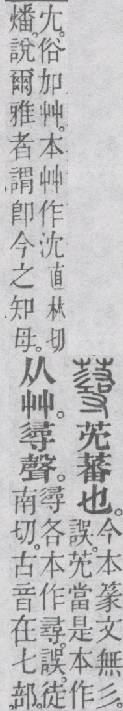 芫蕃也。
今本篆文無彡。
誤。芫當是本作
尢。俗加艸。本艸作沈直林切
燔。說爾雅者謂卽今之知母。
从艸。𢒫聲。
𢒫各本作尋。誤。徒
南切。古音在七部。